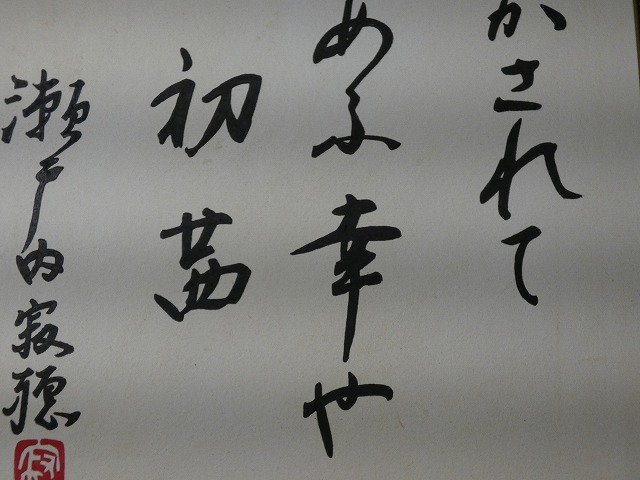 かされて
めふ幸や
初茜
瀬戸内寂聴
寂